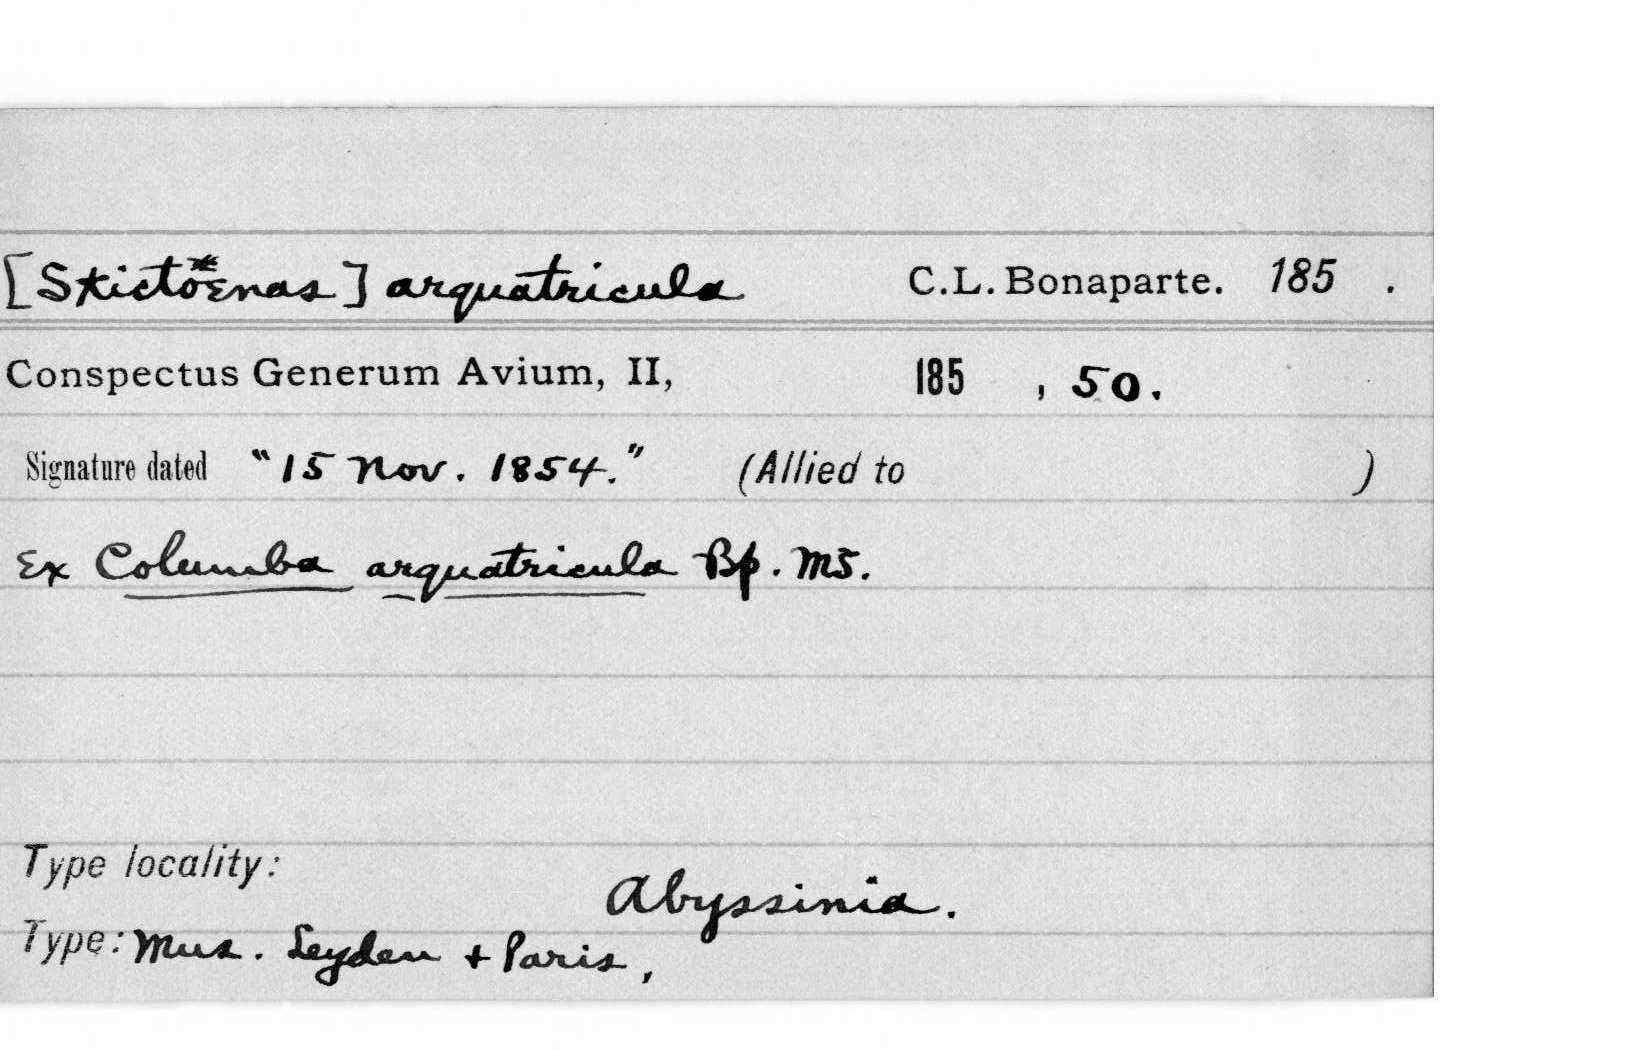 [Stictoenas] arquatricula C.L. Bonaparte. 185 .
Conspectus Generum Avium, II, 185 , 50.
Signature dated "15 Nov. 1854." (Allied to )
Ex Columba arquatricula Bp. MS.
Type locality:
Abyssinia.
Type: Mus. Leyden + Paris,